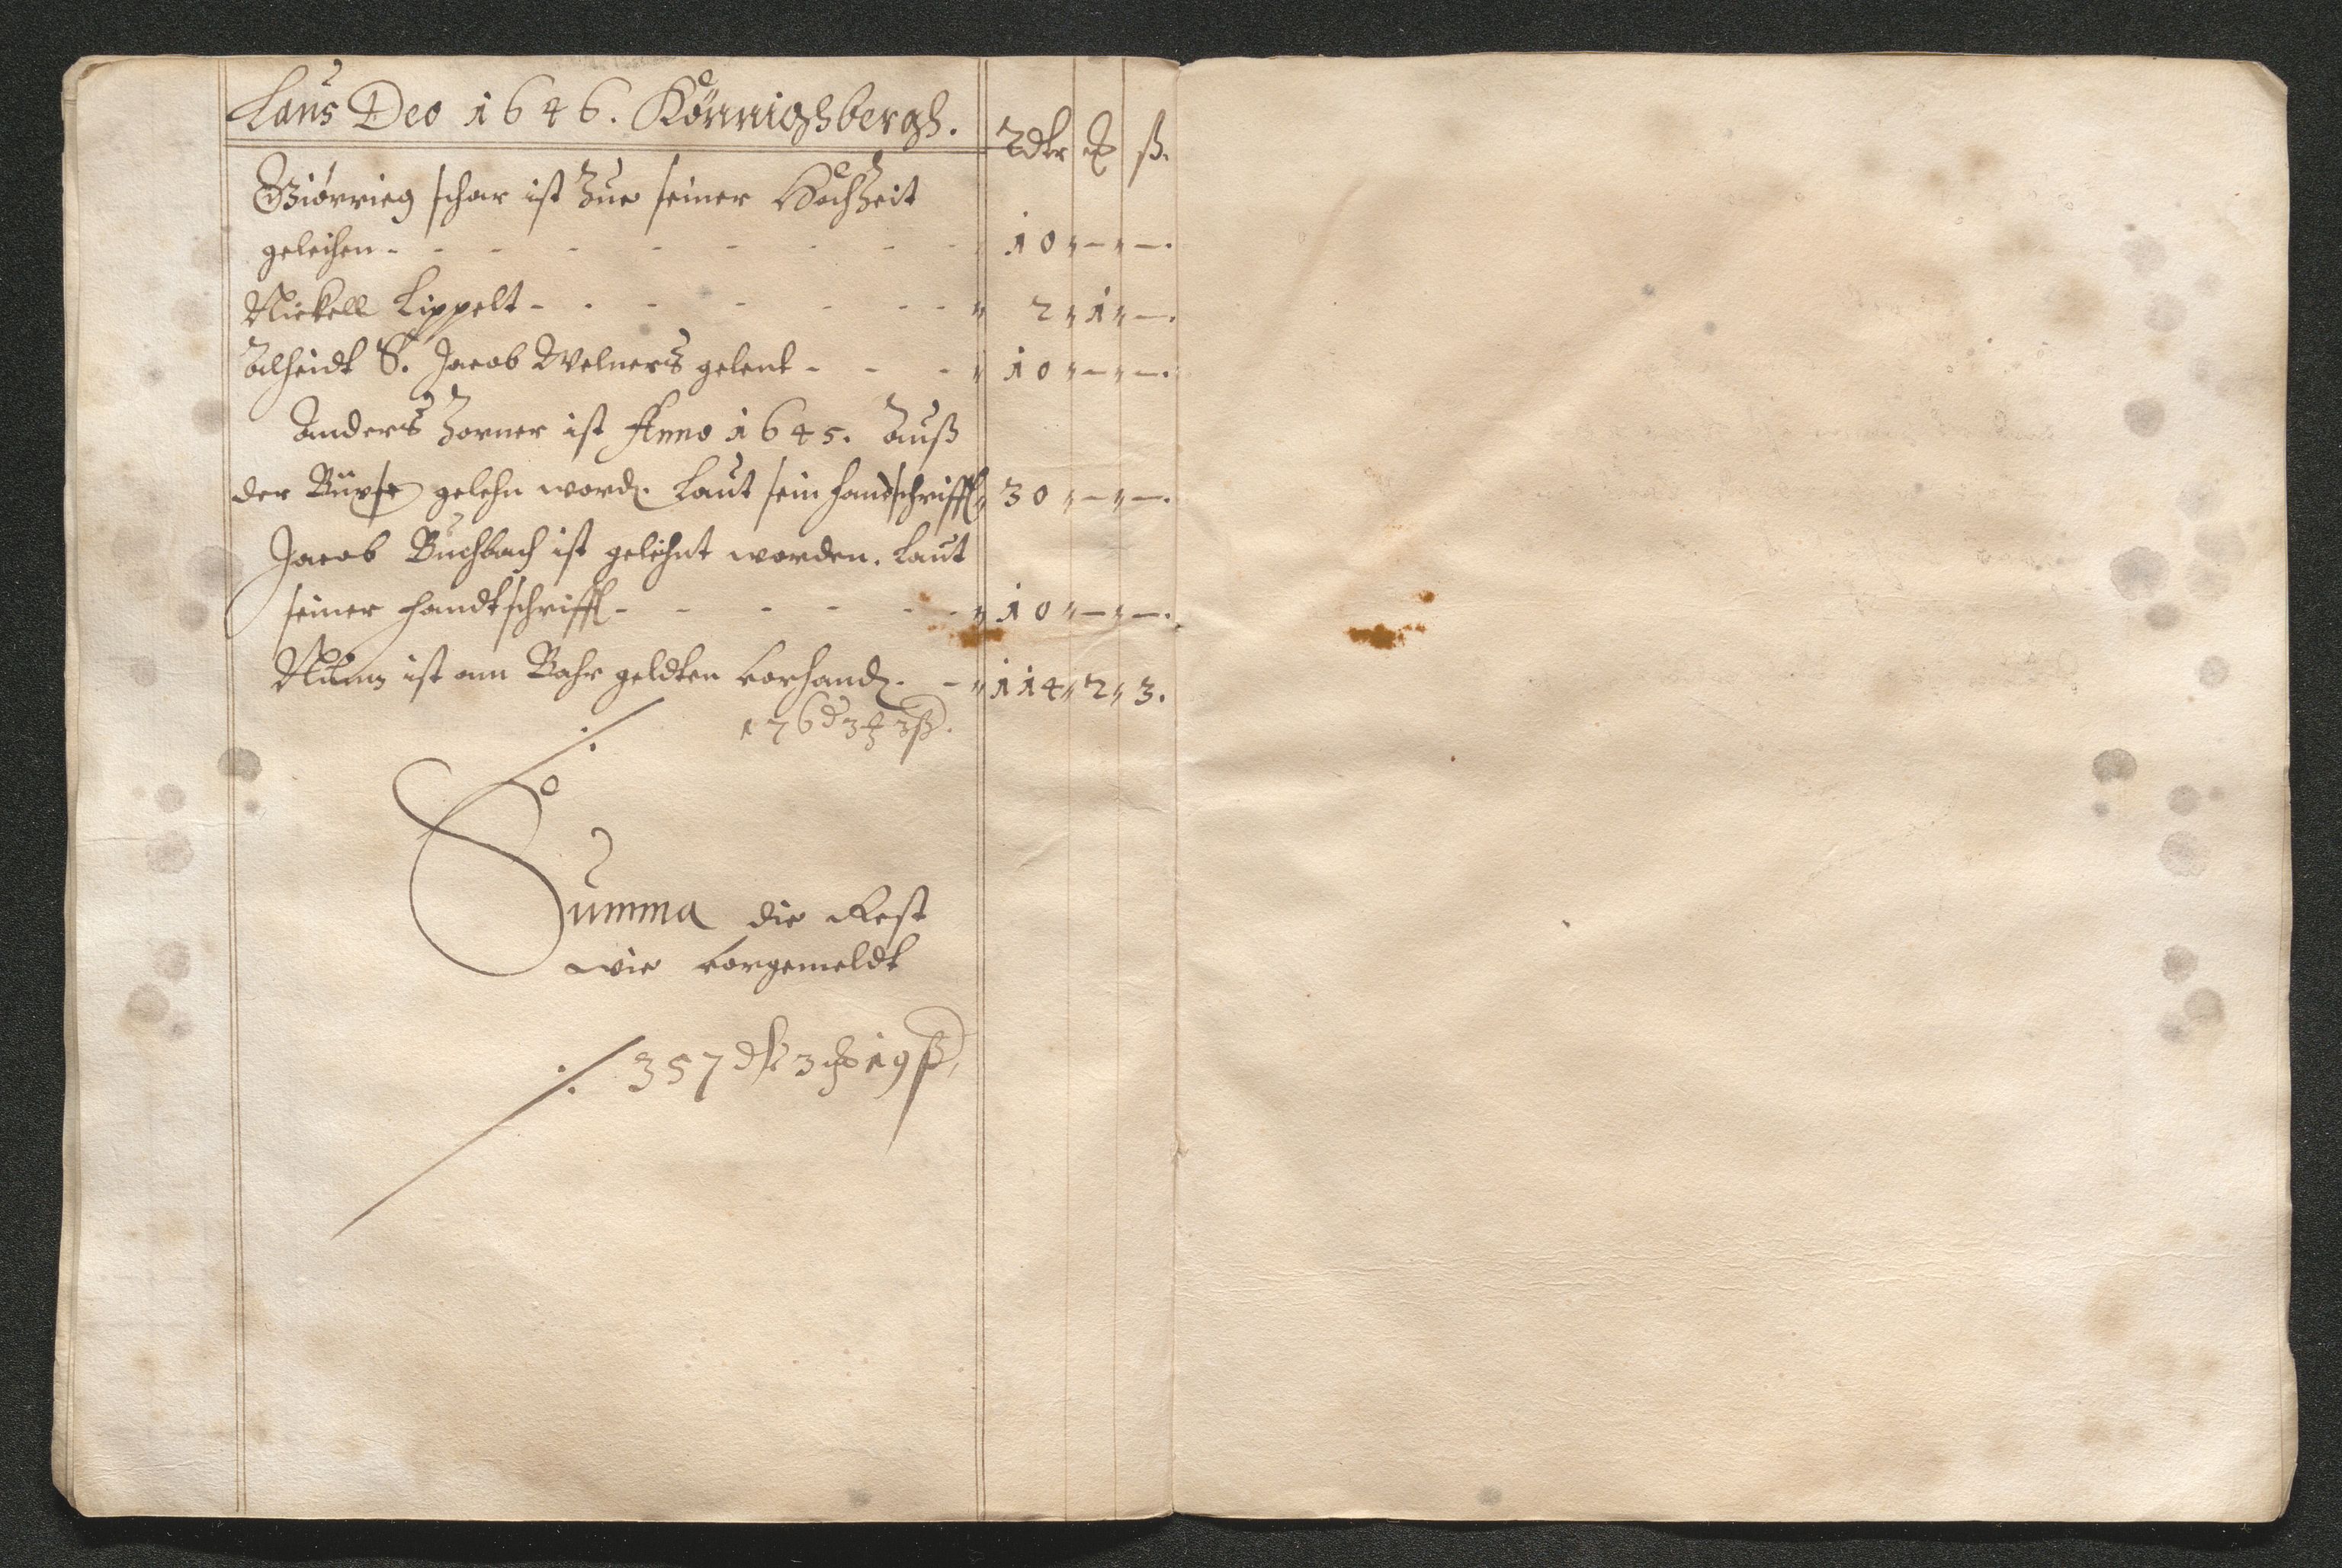 Laus Deo 1646. Könnighsbergh.
Rdlr ß.
Giörrieg schar ist Zue seiner Hochzeit
geleihen - - - - - - - - " 10 " — " —.
Nickell Lippelt - - - - - - - " 2 " 1 " —.
Alheidt S. Jacob Welners gelent - - - " 10 " — " —.
Anders Zorner ist Anno 1645. Auß
der Büxse gelehn word. Laut sein handschrifft " 30 " — " —.
Jacob Buchbach ist gelehnt worden. Laut
seiner handtschrifft - - - - - - " 10 " — " —.
Num ist am Bahr geldten vorhand. - " 114 " 2 " 3.
176 d 3 3 ß.
Summa die Rest
wie vorgemeldt
⁒ 357 dlr 3 19 ß